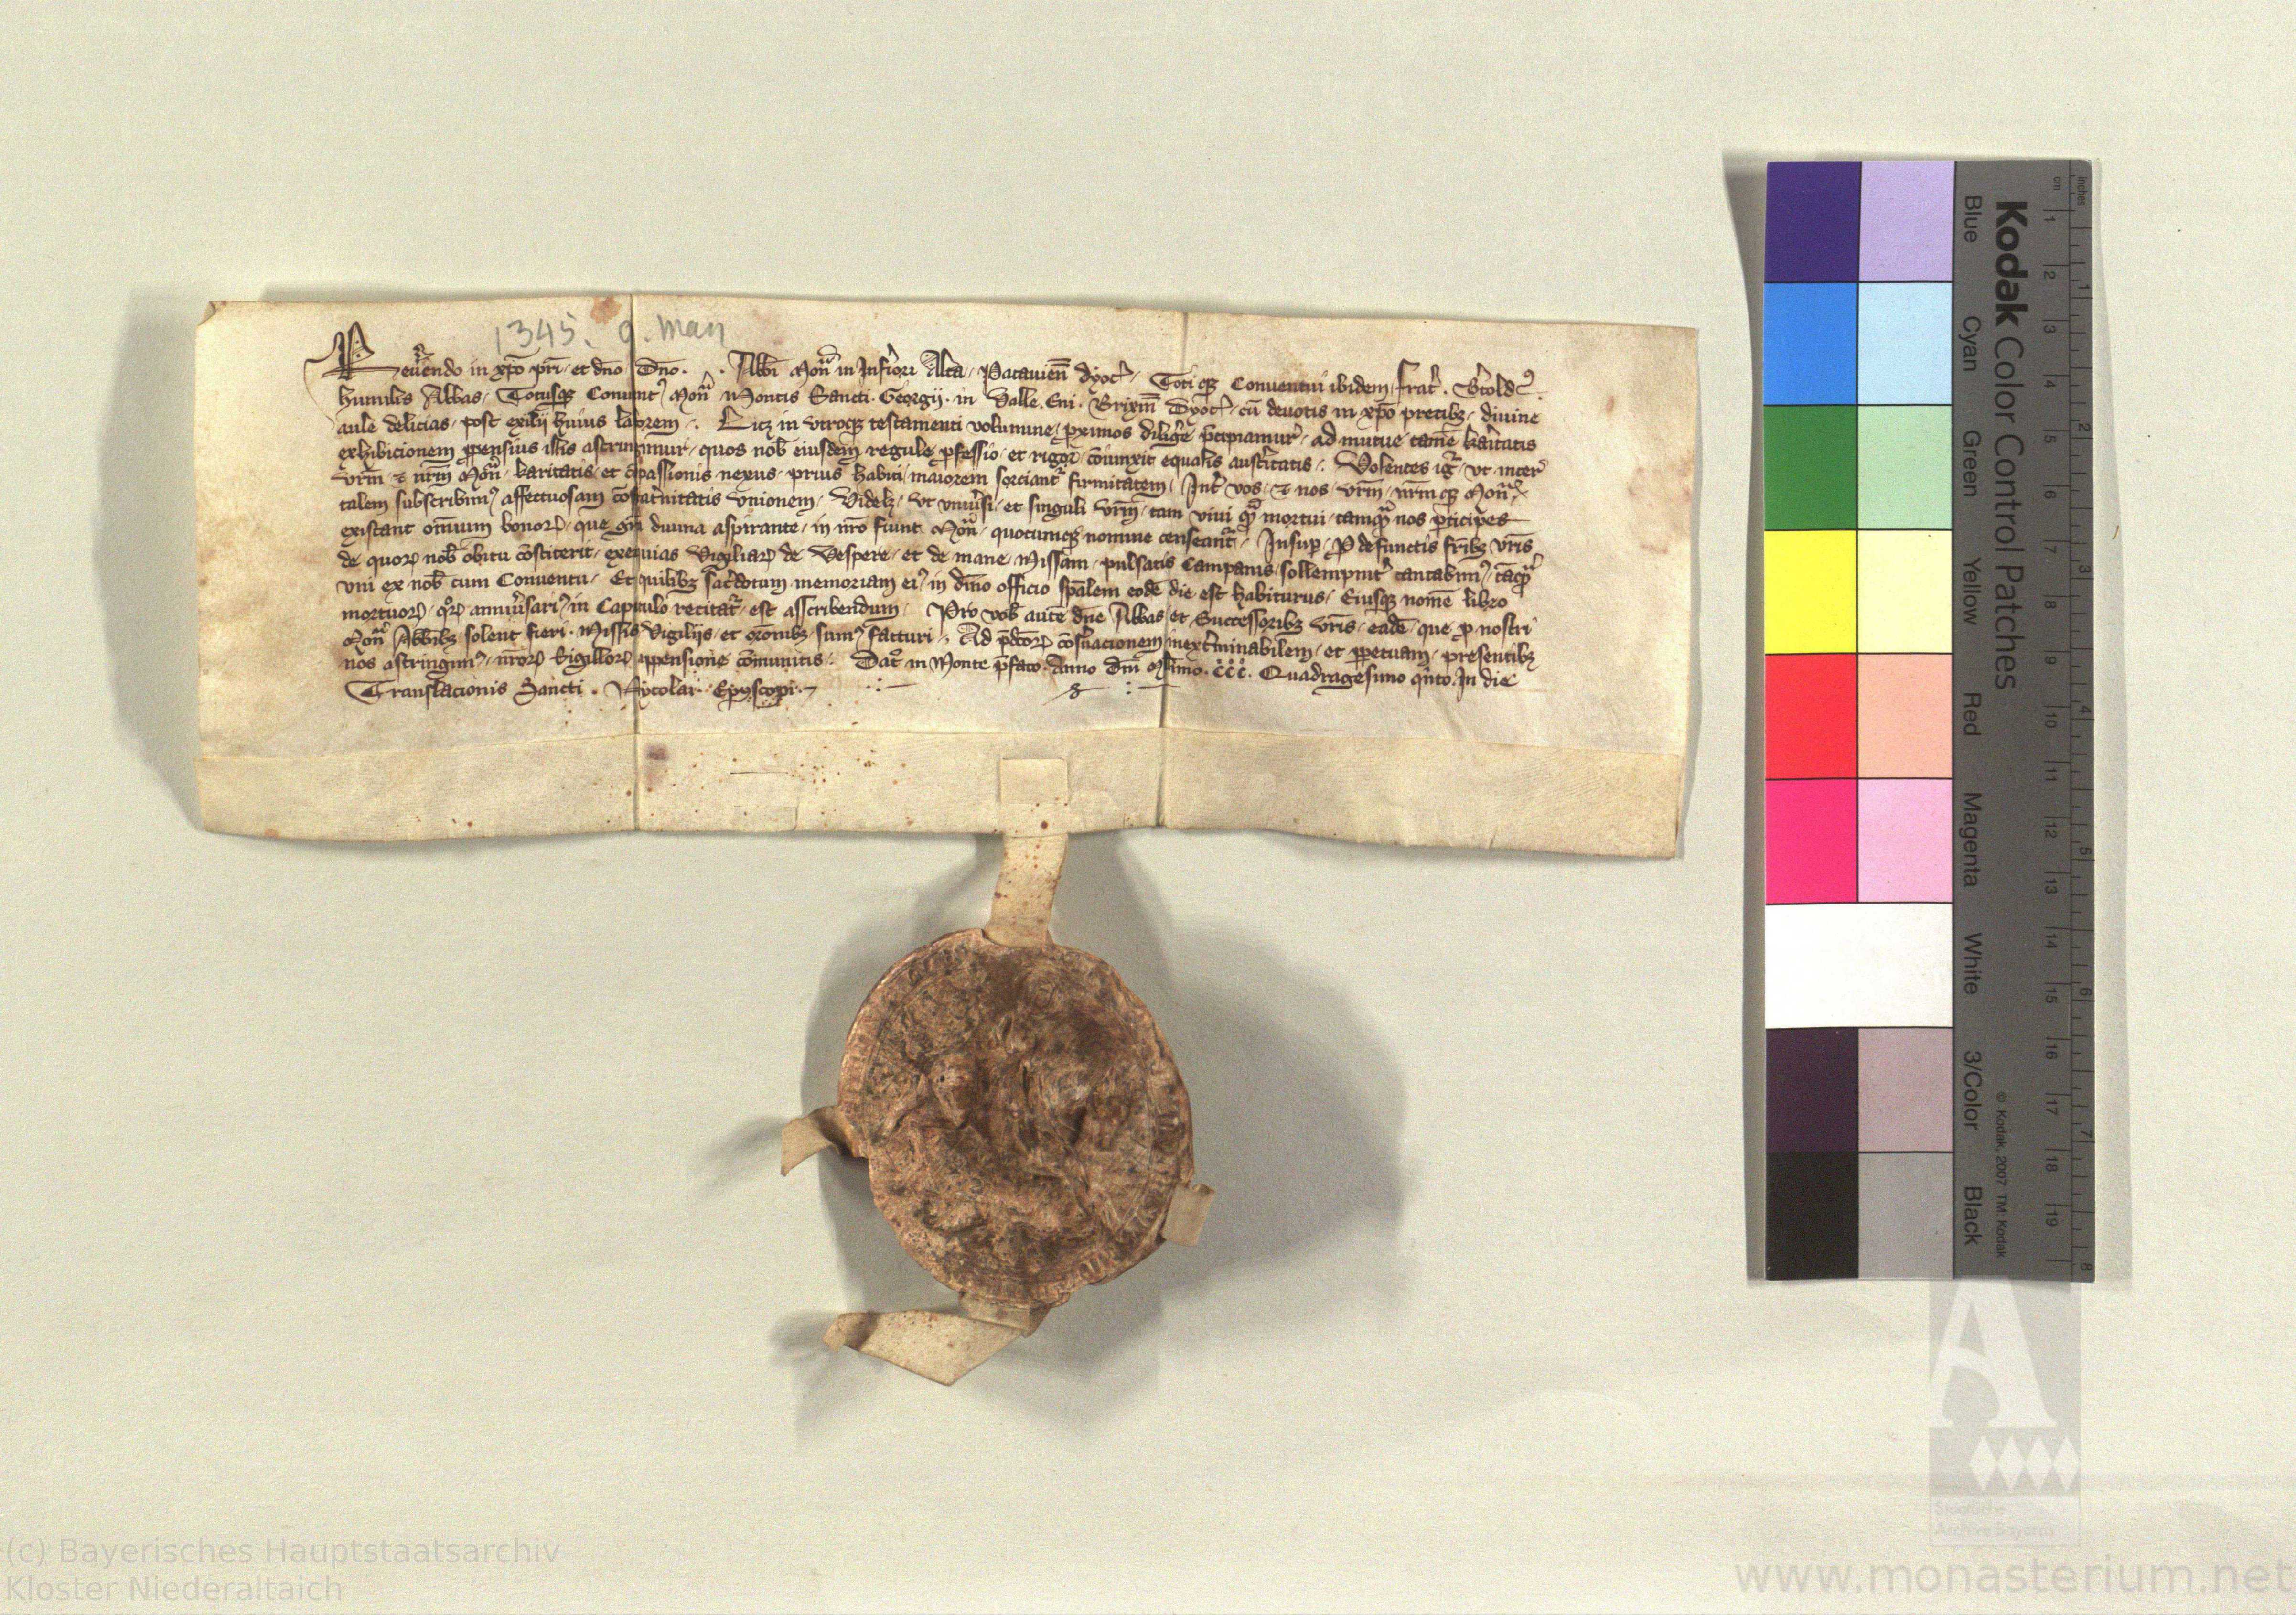 1345. 9. May
Reũendo in xp̄o pr̄i · et dn̄o Dn̄o · . Abb̄i Mon̄ in Inf̃iori Alta · Patauien̄ dyoc̃ · Toti qꝫ Conuentui ibidem · frat̃ · B̃told⁹ .
humilis Abbas · Totusqꝫ Conuent⁹ Mon̄ Montis Sancti · Georgij · in Valle · Eni · Brixin̄ Dyoc̃ · cū deuotis in xp̄o precibꝫ · diuine
aule delicias · post exilij huius laborem · Licꝫ in vtroqꝫ testamenti volumine · ꝓximos dilig̃e p̄cipiamur · ad mutue tamē kar̃itatis
exhibicionem ꝓpensius illis astringimur · quos nob̄ eiusdem regule ꝓfessio · et rigor · cōiunxit equalis aust̃itatis · Volentes ig̃ · vt inter
vr̄m · & nr̄m Mon̄ · karitatis · et ɔpassionis nexus · prius habiti · maiorem sorciant̃ firmitatem · Int̃ vos · & nos · vr̄m · nr̄mqꝫ Mon̄
talem subscribim⁹ affectuosam cōfat̃nitatis vnionem · Videlꝫ · vt vniũsi · et singuli vr̄m · tam viui qᷓ mortui · tamqᷓ nos ꝑticipes
existant om̄ium bonoꝝ · que gr̄a diuina aspirante · in nr̄o fiunt Mon̄ · quocumqꝫ nomine censeant̃ · Insuꝑ · ꝓ defunctis fr̄ibꝫ vr̄is
de quoꝝ nob̄ obitu cōstiterit · exequias Vigiliaꝝ de Vespere · et de mane · Missam · pulsatis Campanis · sollempnit̃ cantabim⁹ · tāqᷓ
vni ex nob̄ cum Conuentu · Et quilibꝫ sac̃dotum memoriam ei⁹ in diūo officio sp̄alem eodē die est habiturus · Eiusqꝫ nomē libro
mortuoꝝ · qͦꝝ anniũsari⁹ in Capitulo recitat̃ · est asscribendum · Pro vob̄ autē dn̄e Abbas · et Successoribꝫ vr̄is · eadē · que ꝓ nostri
Mon̄ Abb̄ibꝫ solent fieri · Missis Vigilijs · et or̄onibꝫ sum⁹ facturi · Ad p̄dc̄oꝝ cōs̃uacionem inext̃minabilem · et ꝑpetuam · presentibꝫ
nos astringim⁹ · nr̄oꝝ Sigilloꝝ appensione cōmunitis · Dat̄ in Monte p̄fato · Anno dn̄i Millimo · CCC · Quadragesimo qͥnto · In die
Translacionis Sancti · Nycolai · Epyscopi ·
Kodak Color Control Patches
Blue Cyan Green Yellow Red Magenta White 3/Color Black
© Kodak, 2007 TM: Kodak
cm 1 2 3 4 5 6 7 8 9 10 11 12 13 14 15 16 17 18 19
inches 1 2 3 4 5 6 7 8
Staatliche
Archive Bayerns
(c) Bayerisches Hauptstaatsarchiv
Kloster Niederaltaich
www.monasterium.net